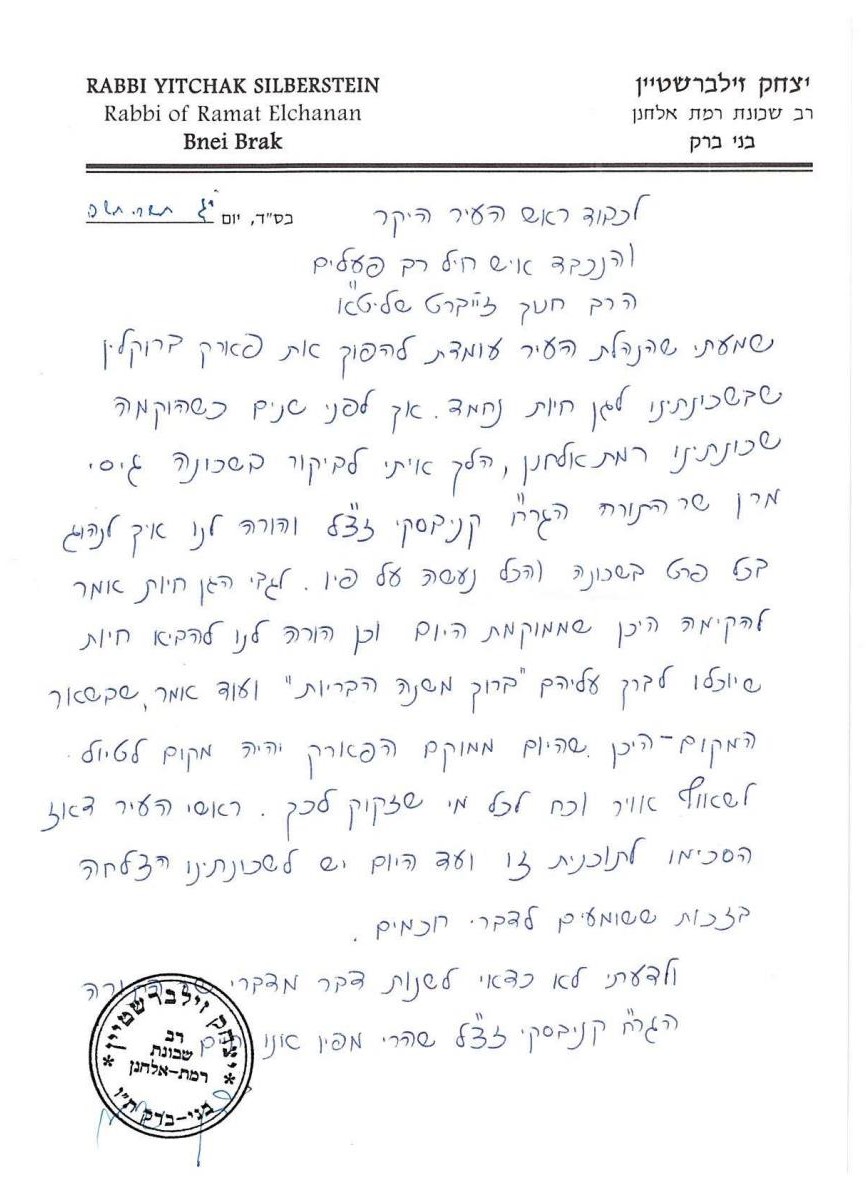 RABBI YITCHAK SILBERSTEIN
Rabbi of Ramat Elchanan
Bnei Brak
יצחק זילברשטיין
רב שכונת רמת אלחנן
בני ברק
בס"ד, יום יג תשרי תשפ
לכבוד ראש העיר היקר
והנכבד איש חיל רב פעלים
הרב חנוך זייברט שליט"א
שמעתי שהנהלת העיר עומדת להפוך את פארק ברוקלין
שבשכונתינו לגן חיות נחמד. אך לפני שנים כשהוקמה
שכונתינו רמת אלחנן, הלך איתי לביקור בשכונה גיסי
מרן שר התורה הגר"ח קניבסקי זצ"ל והורה לנו איך לנהוג
בכל פרט בשכונה והכל נעשה על פיו. לגבי הגן חיות אמר
להקימה היכן שממוקמת היום וכן הורה לנו להביא חיות
שיוכלו לברך עליהם "ברוך משנה הבריות" ועוד אמר, שבשאר
המקום - היכן שהיום ממוקם הפארק יהיה מקום לטיול
לשאוף אוויר וכח לכל מי שזקוק לכך. ראשי העיר דאז
הסכימו לתוכנית זו ועד היום יש לשכונתינו הצלחה
בזכות ששומעים לדברי חכמים.
ולדעתי לא כדאי לשנות דבר מדברי שר התורה
הגר"ח קניבסקי זצ"ל שהרי מפיו אנו חיים
יצחק זילברשטיין
רב
שכונת
רמת-אלחנן
בני-ברק ת"ו